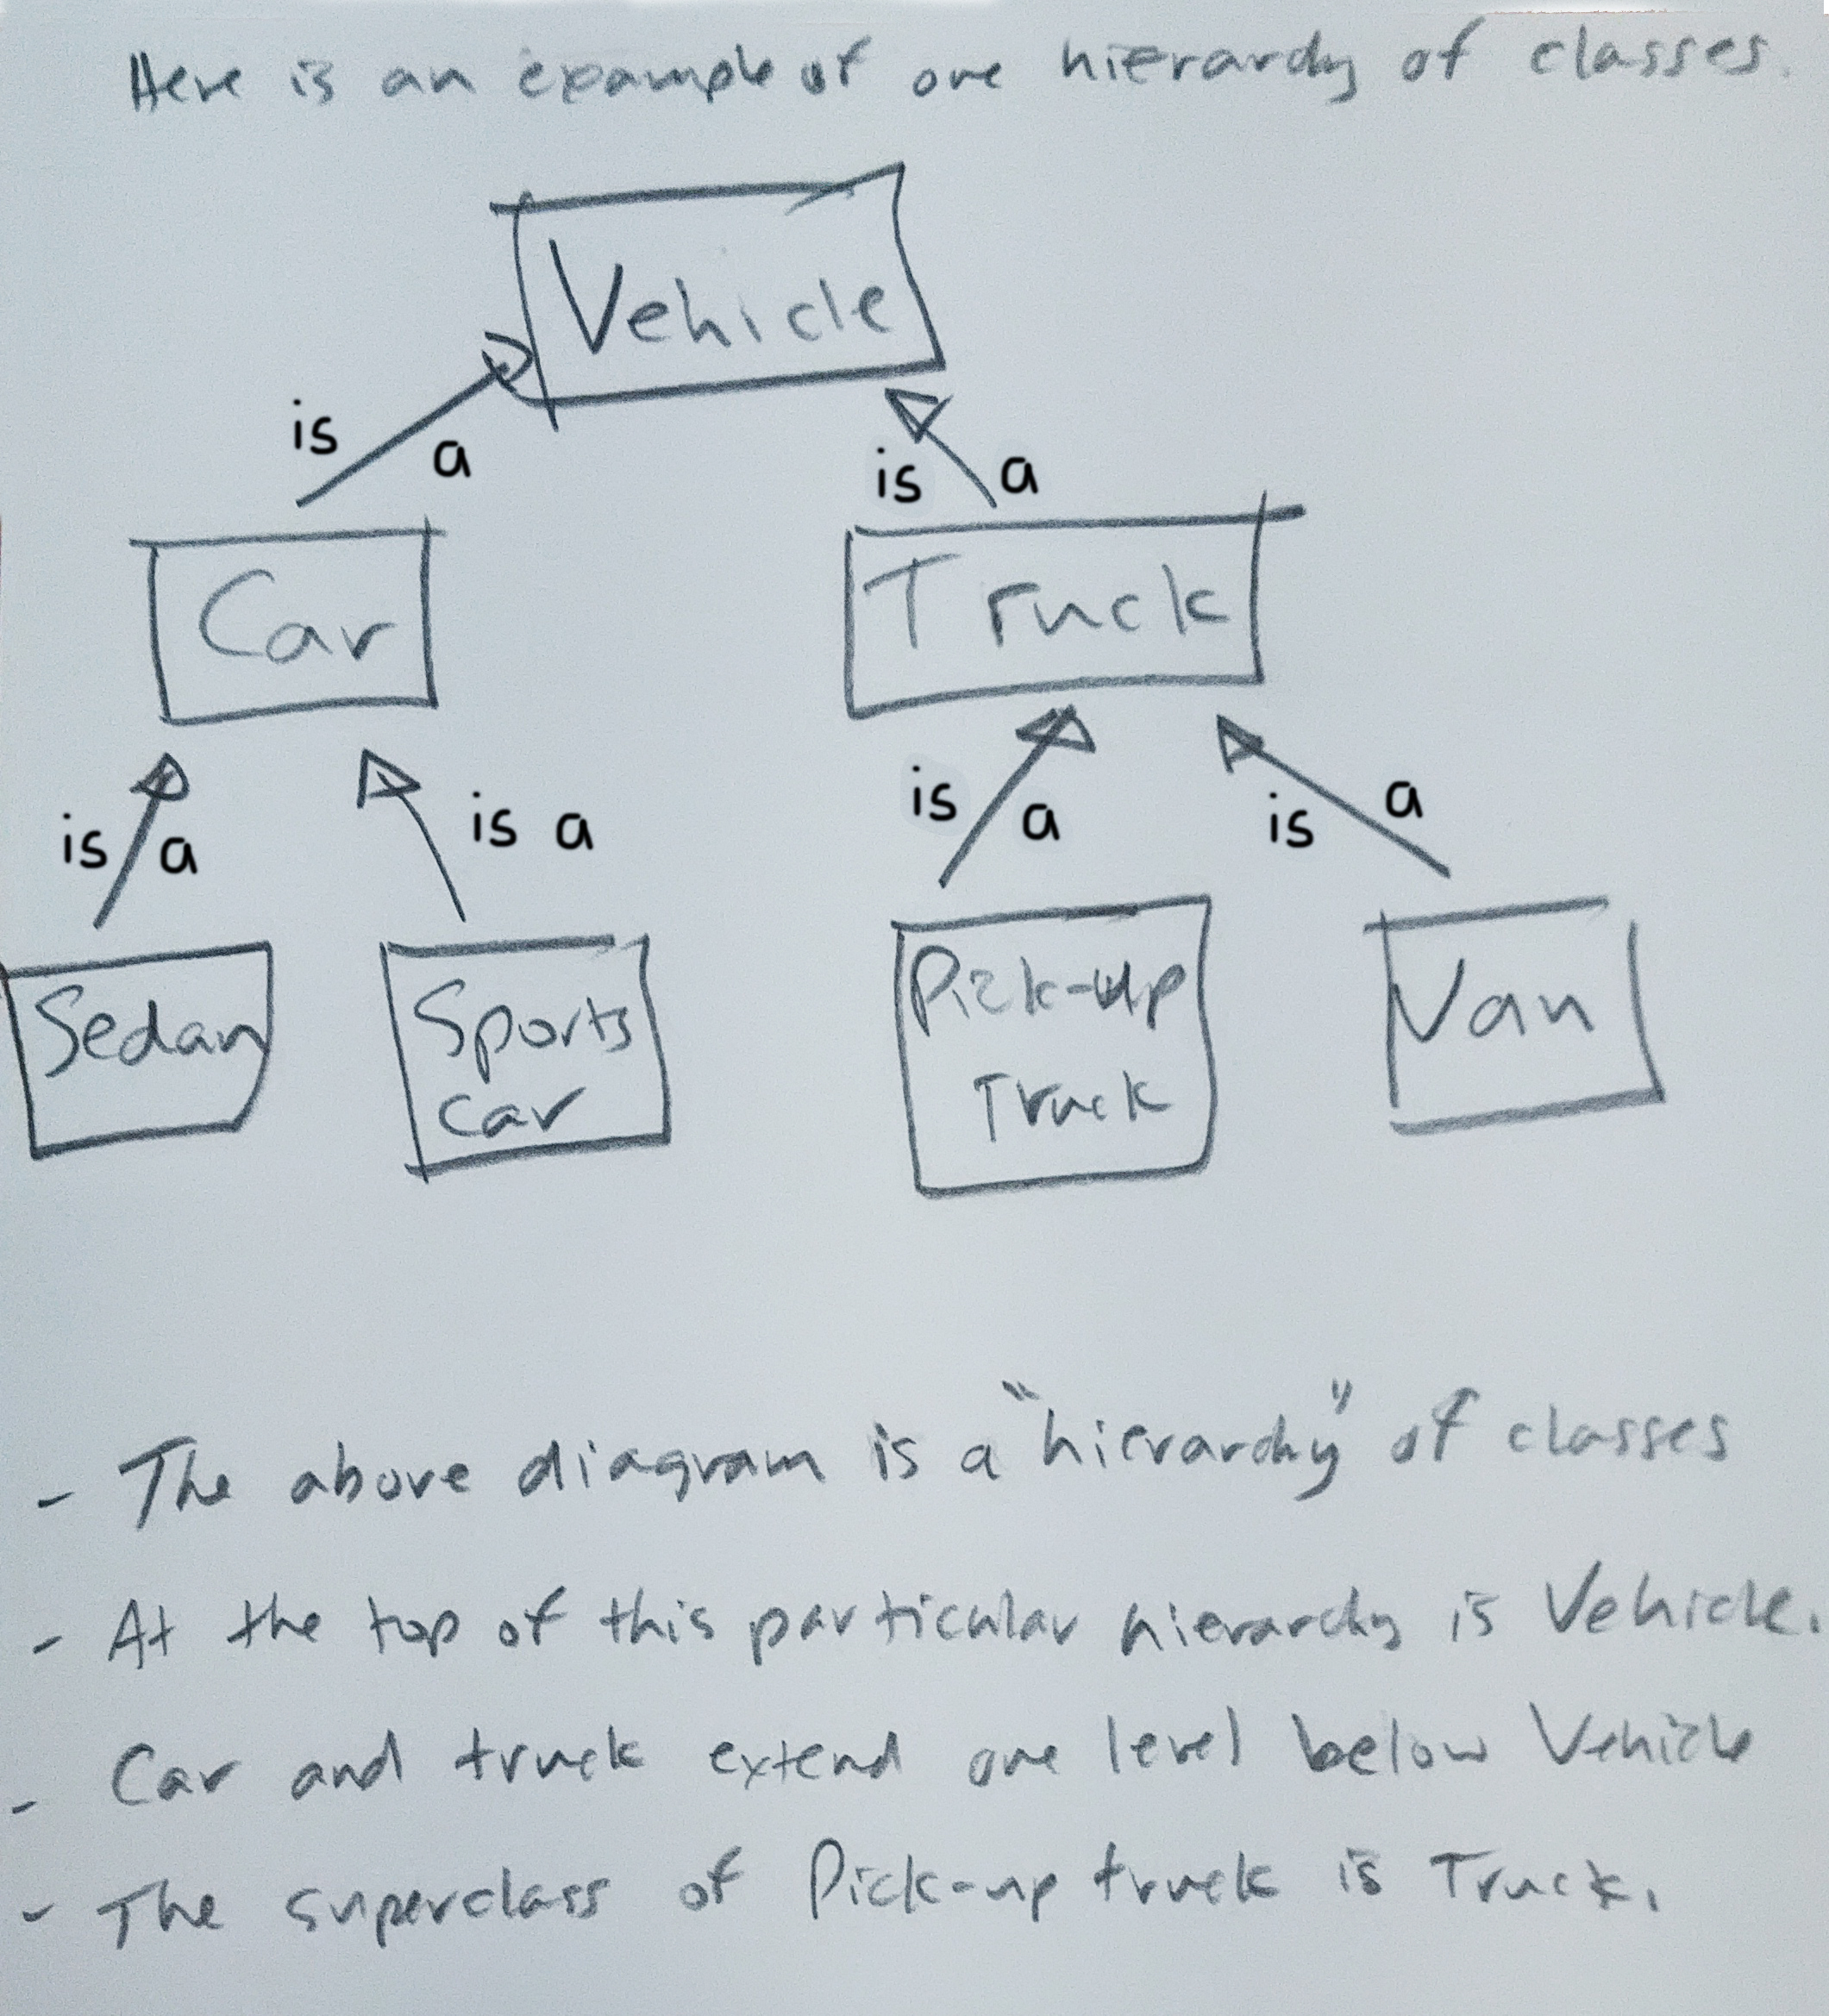 Here is an example of one hierarchy of classes.
Vehicle
is a
is a
Car
Truck
is a
is a
is a
is a
Sedan
Sports
car
Pick-up
Truck
Van
- The above diagram is a "hierarchy" of classes
- At the top of this particular hierarchy is Vehicle.
- Car and truck extend one level below Vehicle
- The superclass of Pick-up truck is Truck.